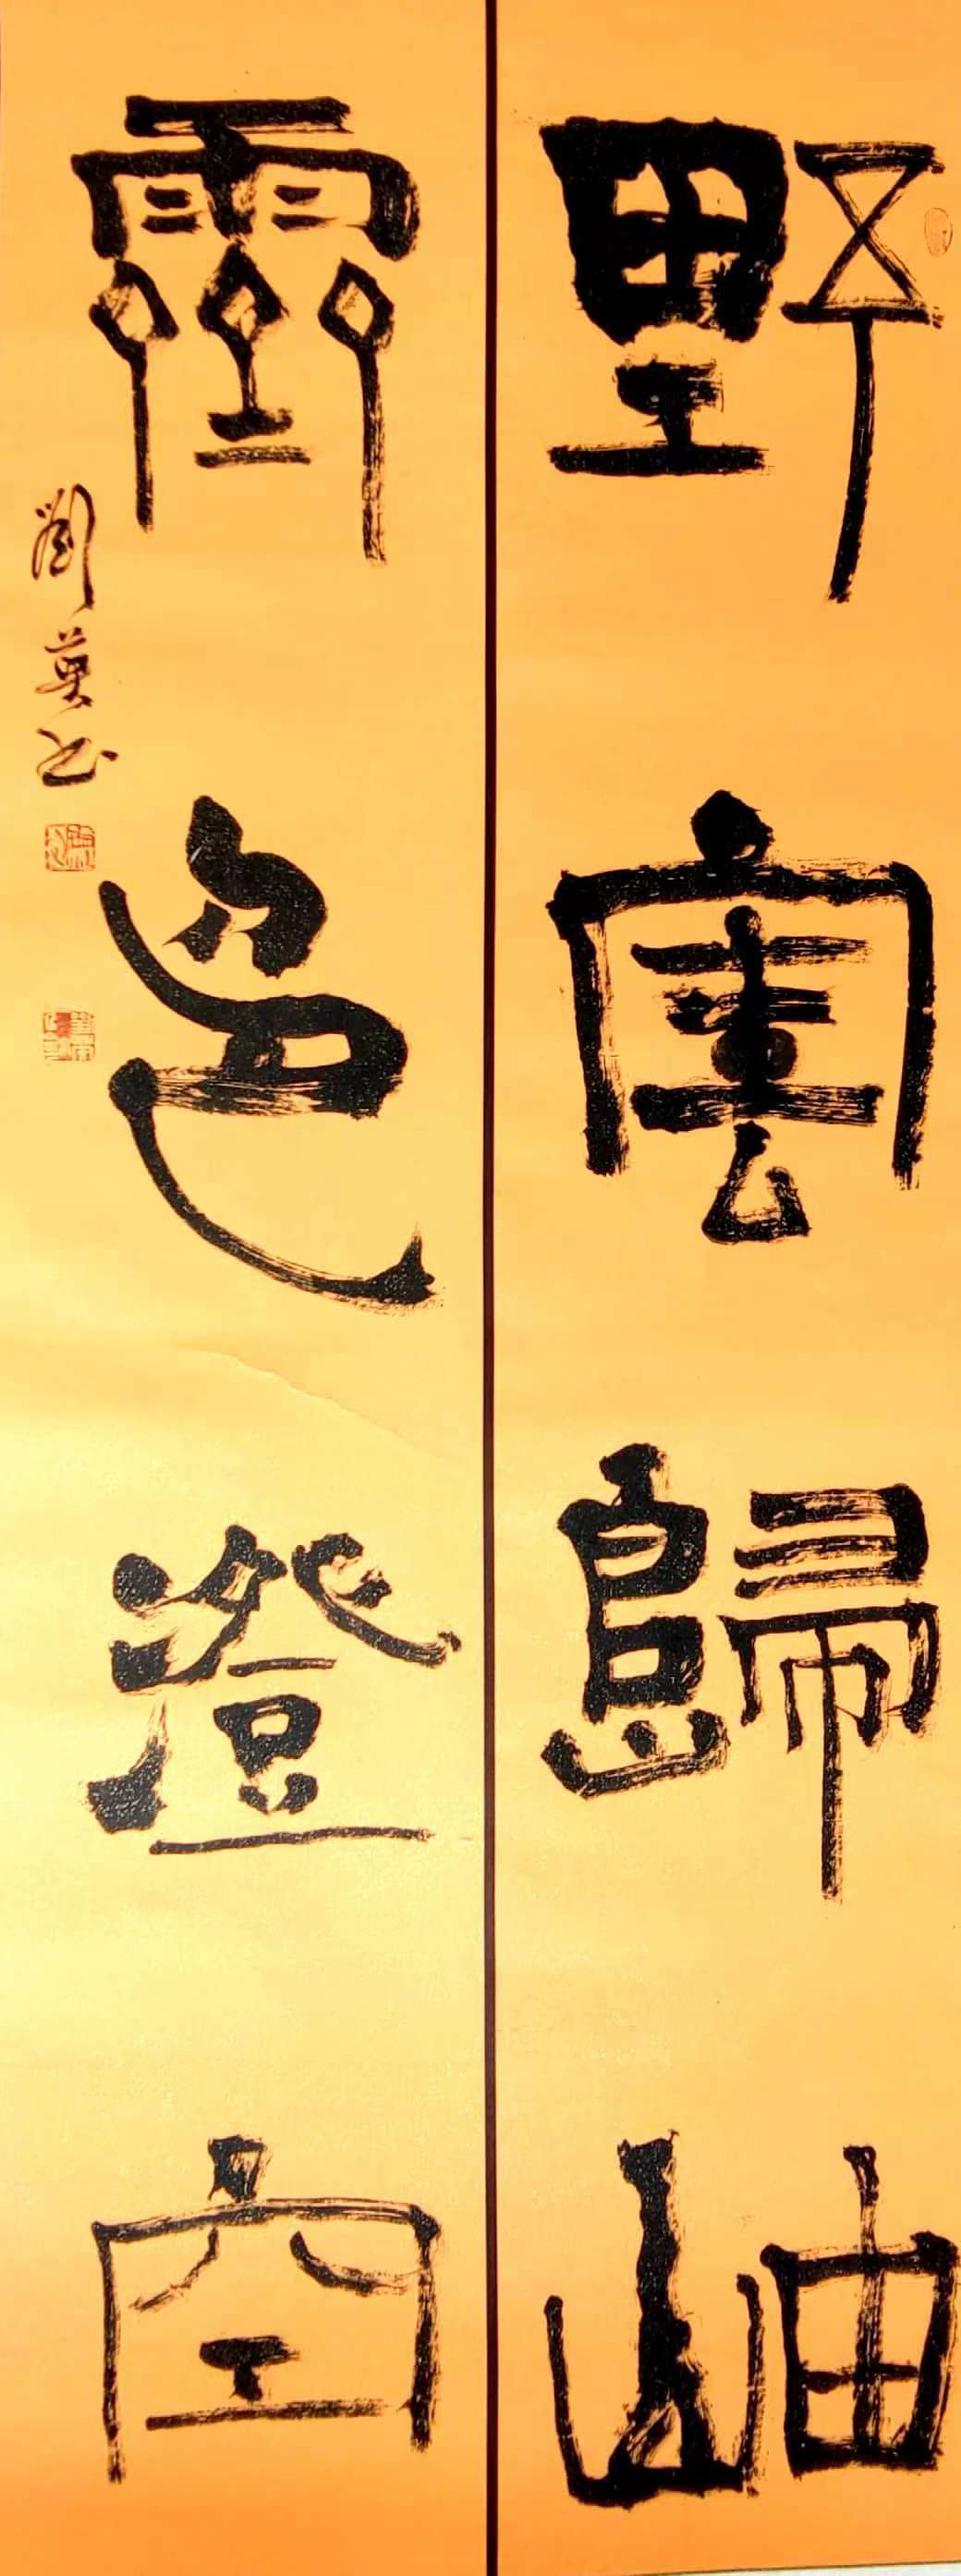 野雲歸岫
霽色澄空
劉英书